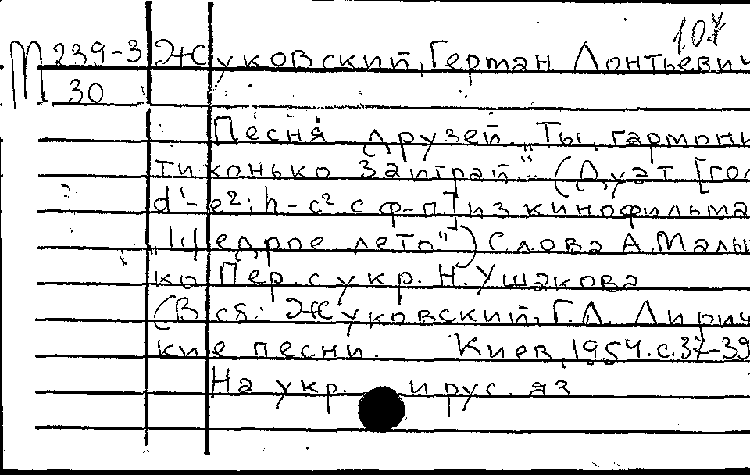 107
М 239-3 Жуковский, Герман Лонтьевич
30
Песня друзей. "Ты, гармони
тихонько заиграй" (Дуэт [гол
d¹-e²; h-c² с ф-п] из кинофильма
"Щедрое лето") Слова А. Малы
ко Пер. с укр. Н. Ушакова
(В сб: Жуковский, Г.Л. Лирич
кие песни. Киев, 1954. с. 37-39
На укр. и рус. яз